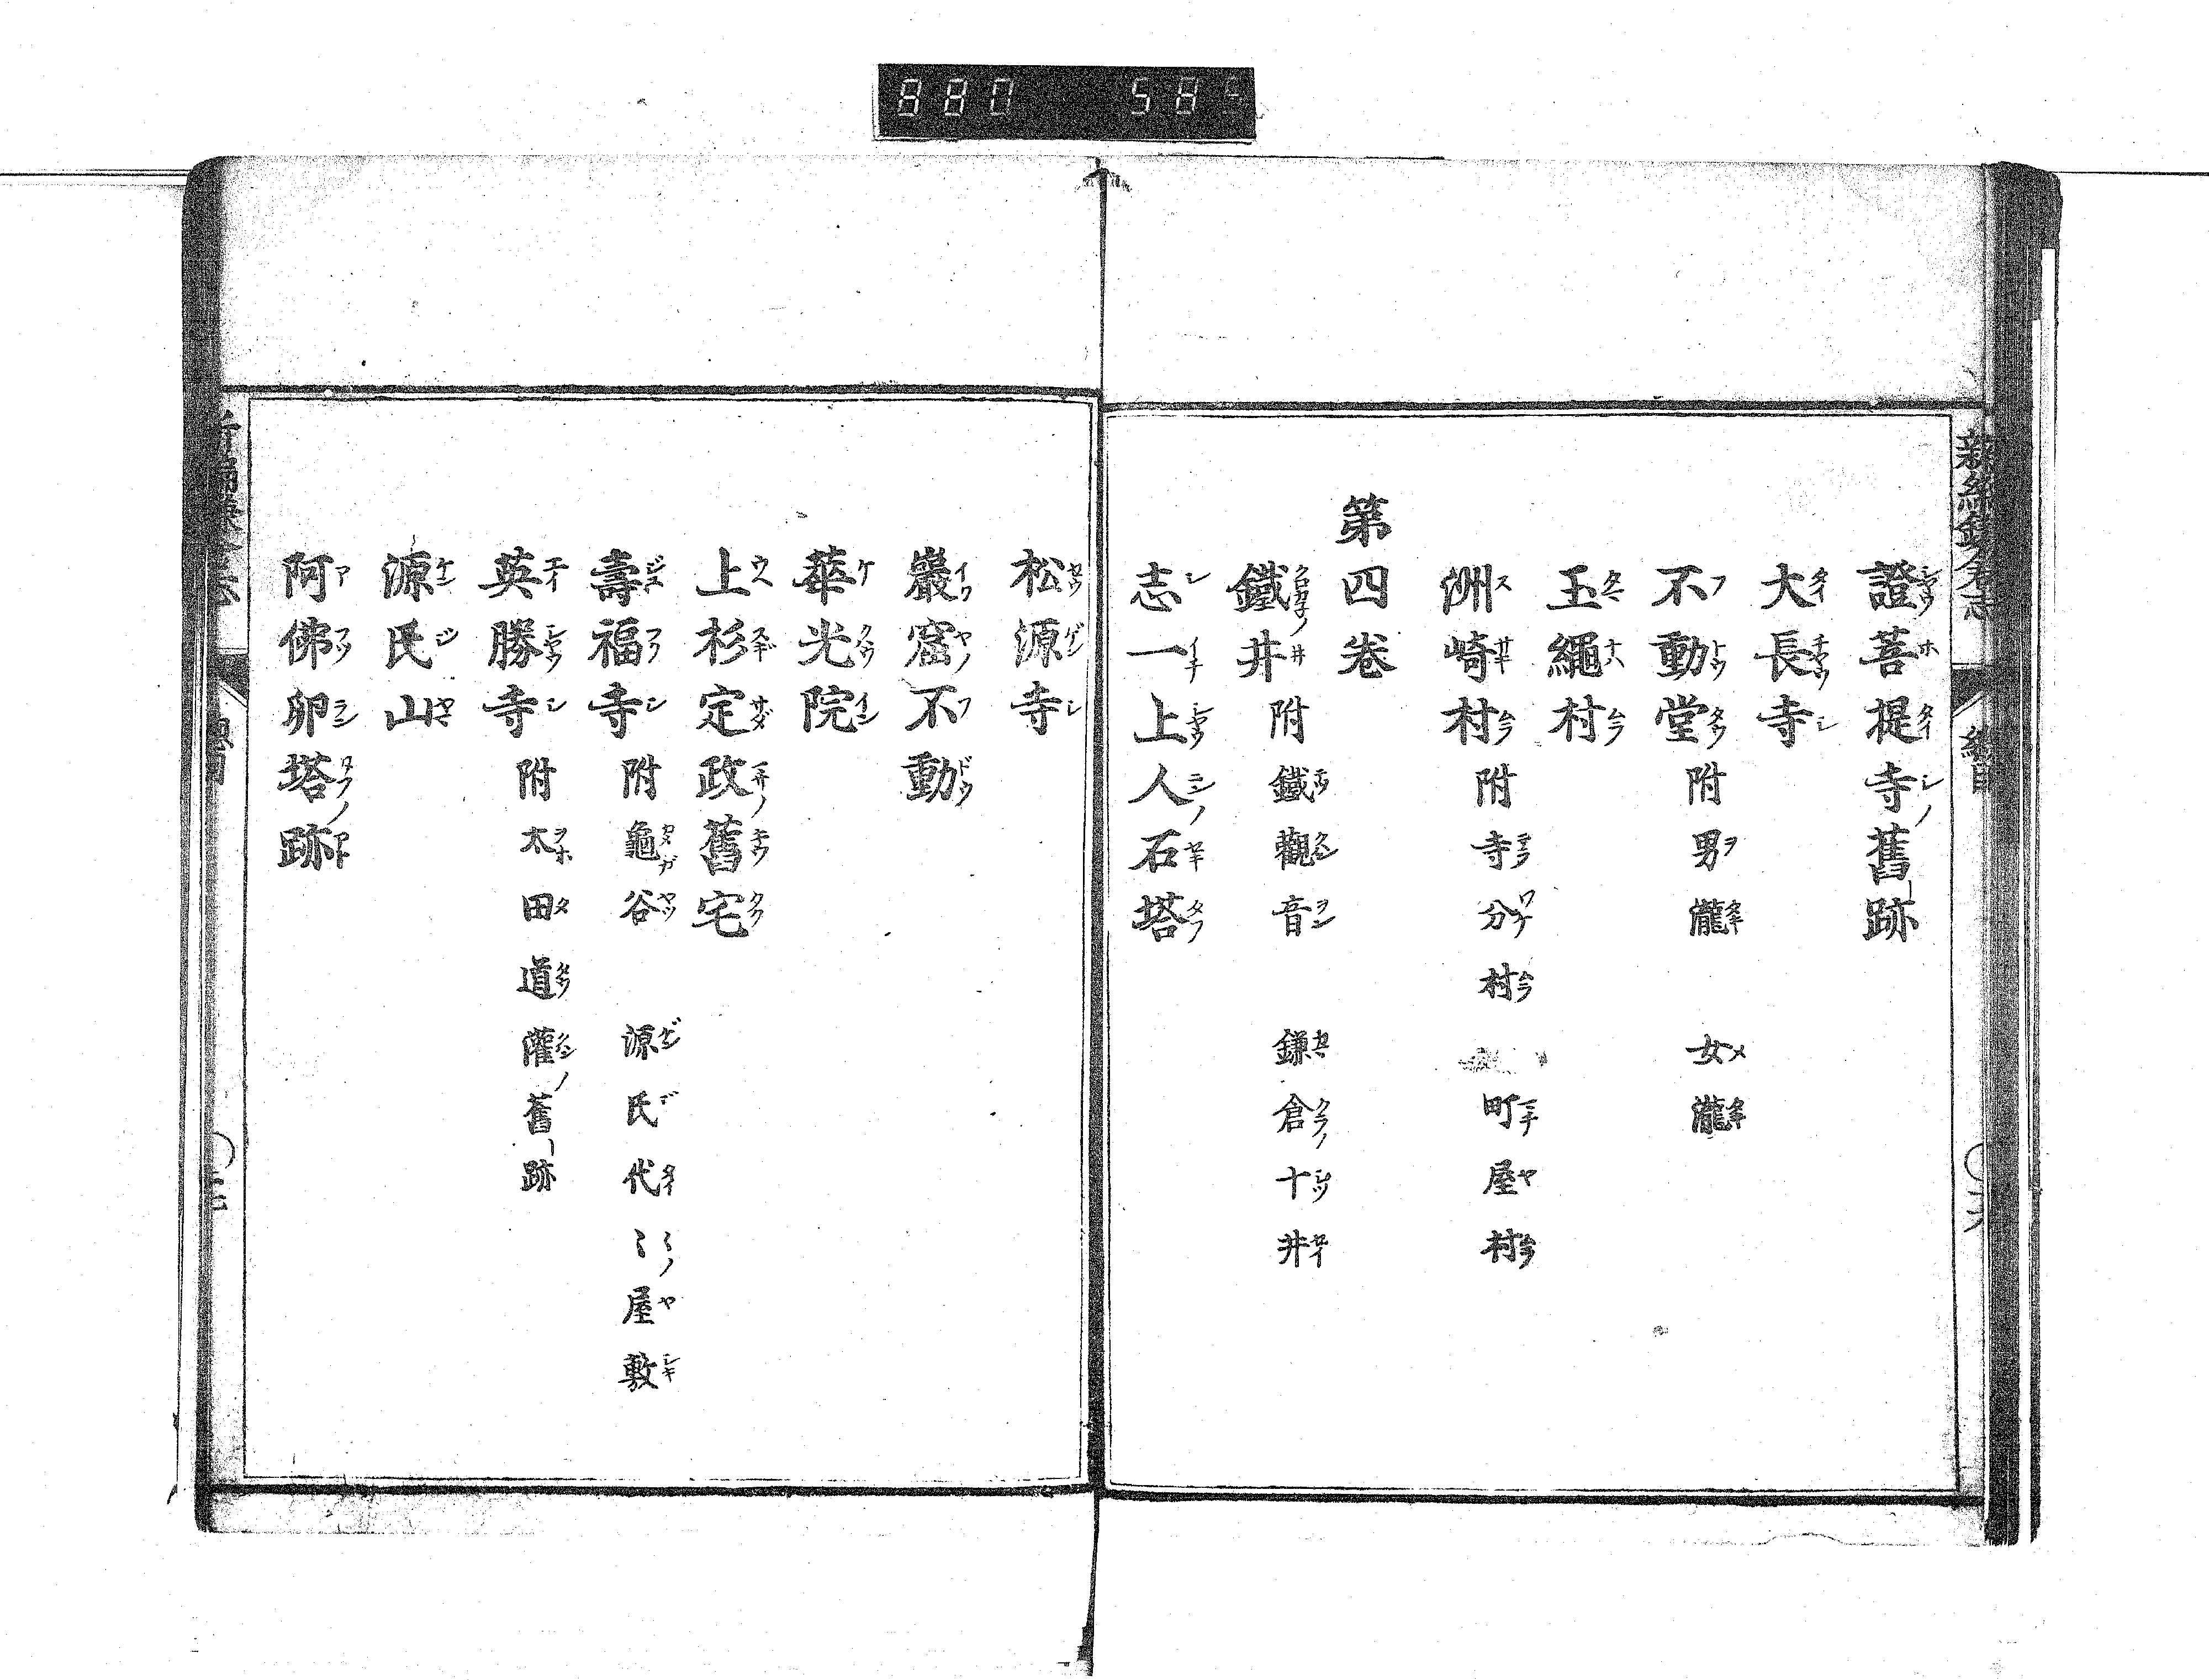 證菩提寺舊跡
大長寺
不動堂附男瀧 女瀧
玉繩村
洲崎村附寺分村 町屋村
第四卷
鐵井附鐵觀音 鎌倉十井
志一上人石塔
松源寺
巖窟不動
華光院
上杉定政舊宅
壽福寺附龜谷 源氏代〻屋敷
英勝寺附太田道灌舊跡
源氏山
阿佛卵塔跡